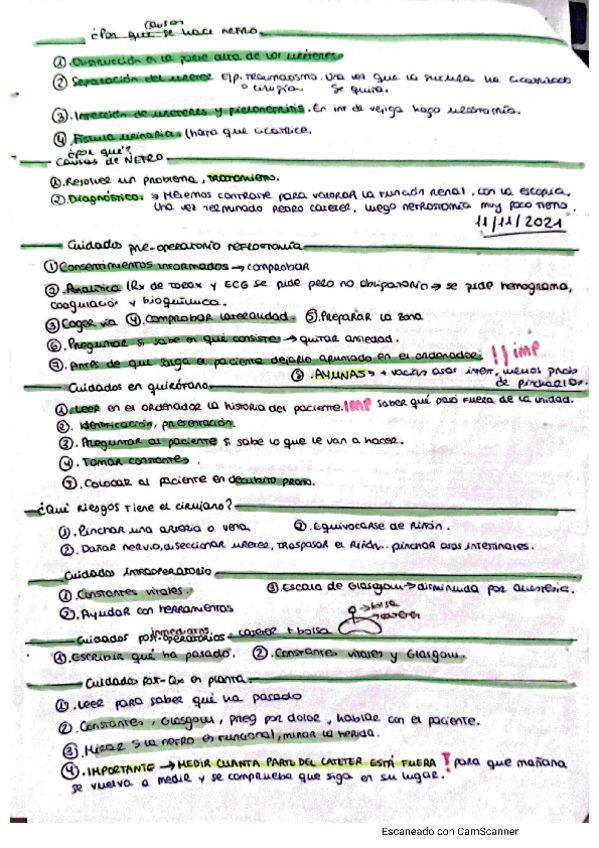 causas
¿Por qué se hace nefro
① Obstrucción en la parte alta de los uréteres
② Separación del uréter e/p. traumatismo. Una vez que la sutura ha cicatrizado
o cirugía. se quita.
③. Infección de uréteres y pielonefritis. En inf de vejiga hago urostomía.
④ Fístula urinaria. (hasta que cicatrice.
¿por qué?
Causas de NEFRO
①. Resolver un problema, tratamiento.
② Diagnóstico. → Metemos contraste para valorar la función renal. con la escopia.
Una vez terminado retiro cateter, luego nefrostomía muy poco tiempo.
11/11/2021
Cuidados pre-operatorio nefrostomía
① Consentimientos informados → comprobar
②. Analítica (Rx de torax y ECG se pide pero no obligatorio → se pide hemograma,
coagulación y bioquímica.
③ Coger vía ④. Comprobar lateralidad. ⑤. Preparar la zona
⑥. Preguntar si sabe en qué consiste → quitar ansiedad.
⑦. Antes de que salga el paciente dejarlo apuntado en el ordenador. !! imp
⑧. AYUNAS → + vacías asas intes, menos prob
de pincharlos.
Cuidados en quirófano
①. Leer en el ordenador la historia del paciente. IMP saber qué pasó fuera de la unidad.
②. Identificación, presentación.
③. Preguntar al paciente si sabe lo que le van a hacer.
④. Tomar constantes.
⑤. Colocar al paciente en decúbito prono.
¿Qué riesgos tiene el cirujano?
①. Pinchar una arteria o vena. ②. Equivocarse de riñón.
②. Dañar nervio, diseccionar uréter, traspasar el riñón. pinchar asas intestinales.
Cuidados intraoperatorio
①. Constantes vitales. ③. Escala de Glasgow → disminuida por anestesia.
②. Ayudar con herramientas
→ bolsa
→ cateter
inmediatos
Cuidados post-operatorios cateter + bolsa
①. Escribir qué ha pasado. ②. Constantes vitales y Glasgow.
Cuidados post-Qx en planta
①. Leer para saber qué ha pasado
②. Constantes, Glasgow, preg por dolor, hablar con el paciente.
③. Mirar si la nefro es funcional, mirar la herida.
④. IMPORTANTE → MEDIR CUANTA PARTE DEL CATETER ESTÁ FUERA ! para que mañana
se vuelva a medir y se comprueba que siga en su lugar.
Escaneado con CamScanner